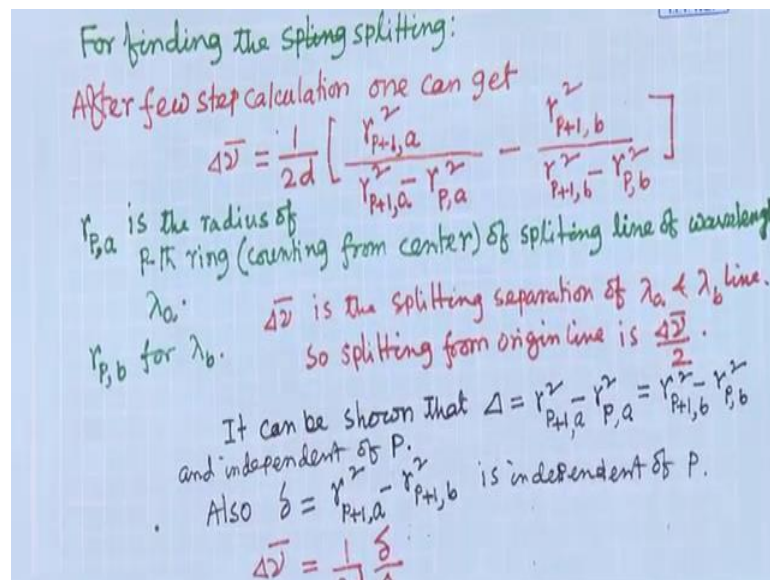 For finding the spting splitting:
After few step calculation one can get
Δν̄ = 1/2d [ r²p+1,a / r²p+1,a - r²p,a - r²p+1,b / r²p+1,b - r²p,b ]
rp,a is the radius of
p-th ring (counting from center) of spliting line of wavelengt
λa.
Δν̄ is the splitting separation of λa & λb line.
rp,b for λb.
So splitting from origin line is Δν̄/2.
It can be shown that Δ = r²p+1,a - r²p,a = r²p+1,b - r²p,b
and independent of P.
Also δ = r²p+1,a - r²p+1,b is independent of P.
Δν̄ = 1 δ